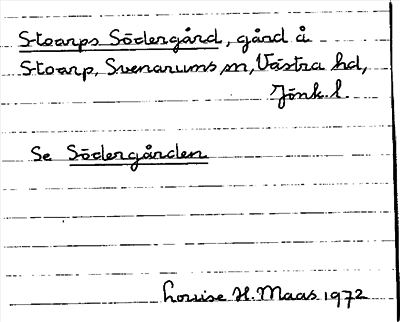 Stoarps Södergård, gård å
Stoarp, Svenarums sn, Västra hd,
Jönk. l.
Se Södergården
Louise H. Maas 1972